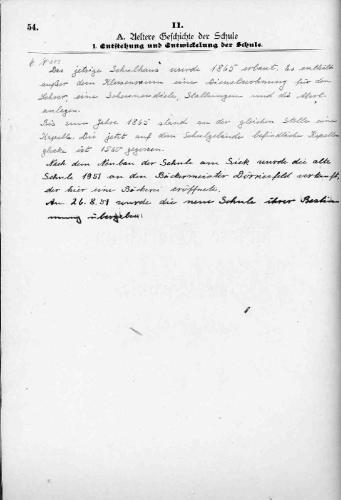 54.
II.
A. Aeltere Geschichte der Schule
1. Entstehung und Entwickelung der Schule.
Das jetzige Schulhaus wurde 1865 erbaut. Es enthält
außer dem Klassenraum eine Dienstwohnung für den
Lehrer, eine Scheunendiele, Stallungen und die Abort-
anlagen.
Bis zum Jahre 1865 stand an der gleichen Stelle eine
Kapelle. Die jetzt auf dem Schulgelände befindliche Kapellen-
glocke ist gegossen.
Nach dem Neubau der Schule am Siek wurde die alte
Schule 1951 an den Bäckermeister Dörrienfeld verkauft,
der hier eine Bäckerei eröffnete.
Am 26.8.51 wurde die neue Schule ihrer Bestim-
mung übergeben.